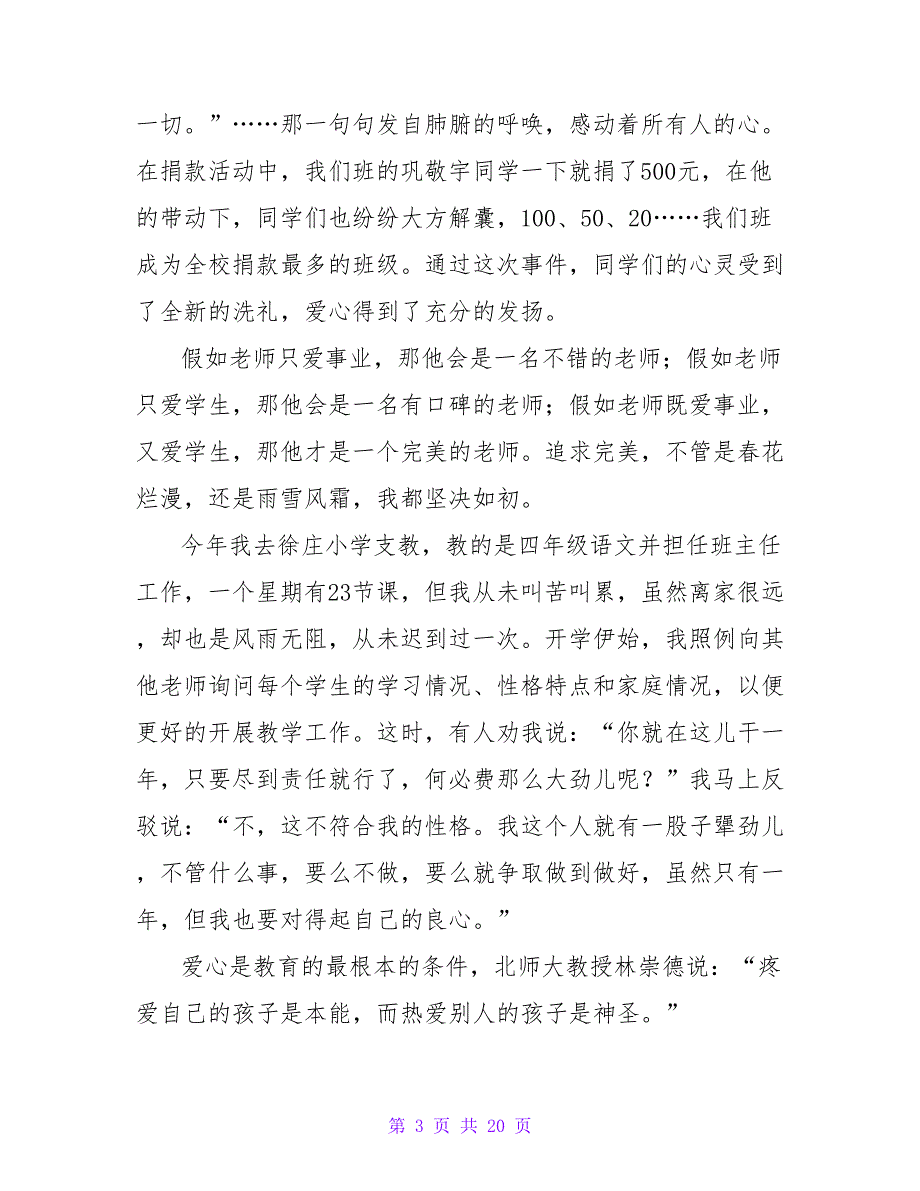 一切。”……那一句句发自肺腑的呼唤，感动着所有人的心。
在捐款活动中，我们班的巩敬宇同学一下就捐了500元，在他
的带动下，同学们也纷纷大方解囊，100、50、20……我们班
成为全校捐款最多的班级。通过这次事件，同学们的心灵受到
了全新的洗礼，爱心得到了充分的发扬。
假如老师只爱事业，那他会是一名不错的老师；假如老师
只爱学生，那他会是一名有口碑的老师；假如老师既爱事业，
又爱学生，那他才是一个完美的老师。追求完美，不管是春花
烂漫，还是雨雪风霜，我都坚决如初。
今年我去徐庄小学支教，教的是四年级语文并担任班主任
工作，一个星期有23节课，但我从未叫苦叫累，虽然离家很远
，却也是风雨无阻，从未迟到过一次。开学伊始，我照例向其
他老师询问每个学生的学习情况、性格特点和家庭情况，以便
更好的开展教学工作。这时，有人劝我说：“你就在这儿干一
年，只要尽到责任就行了，何必费那么大劲儿呢？”我马上反
驳说：“不，这不符合我的性格。我这个人就有一股子犟劲儿
，不管什么事，要么不做，要么就争取做到做好，虽然只有一
年，但我也要对得起自己的良心。”
爱心是教育的最根本的条件，北师大教授林崇德说：“疼
爱自己的孩子是本能，而热爱别人的孩子是神圣。”
第 3 页 共 20 页